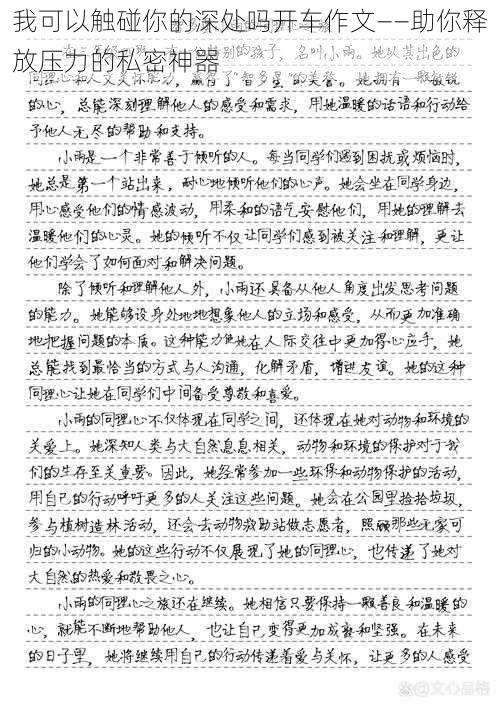 我可以触碰你的深处吗开车作文——助你释
放压力的私密神器
同理心和人文关怀能力，赢得了“智多星”的美誉。她拥有一颗敏锐
的心，总能深刻理解他人的感受和需求，用她温暖的话语和行动给
予他人无尽的帮助和支持。
小雨是一个非常善于倾听的人。每当同学们遇到困扰或烦恼时，
她总是第一个站出来，耐心地倾听他们的心声。她会坐在同学身边，
用心感受他们的情感波动，用柔和的语气安慰他们，用她的理解去
温暖他们的心灵。她的倾听不仅让同学们感到被关注和理解，更让
他们学会了如何面对和解决问题。
除了倾听和理解他人外，小雨还具备从他人角度出发思考问题
的能力。她能够设身处地地想象他人的立场和感受，从而更加准确
地把握问题的本质。这种能力使她在人际交往中更加得心应手，她
总能找到最恰当的方式与人沟通，化解矛盾，增进友谊。她的这种
同理心让她在同学们中间备受尊敬和喜爱。
小雨的同理心不仅体现在同学之间，还体现在她对动物和环境的
关爱上。她深知人类与大自然息息相关，动物和环境的保护对于我
们的生存至关重要。因此，她经常参加一些环保和动物保护的活动，
用自己的行动呼吁更多的人关注这些问题。她会在公园里捡拾垃圾，
参与植树造林活动，还会去动物救助站做志愿者，照顾那些无家可
归的小动物。她的这些行动不仅展现了她的同理心，也传递了她对
大自然的热爱和敬畏之心。
小雨的同理心之旅还在继续。她相信只要保持一颗善良和温暖的
心，就能不断地帮助他人，也让自己变得更加成熟和坚强。在未来
的日子里，她将继续用自己的行动传递着爱与关怀，让更多的人感受
@文心品格